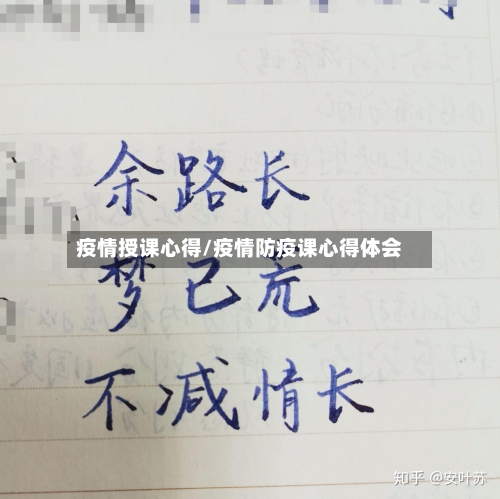 余路长
疫情授课心得/疫情防疫课心得体会
梦已荒
不减情长
知乎 @安叶苏